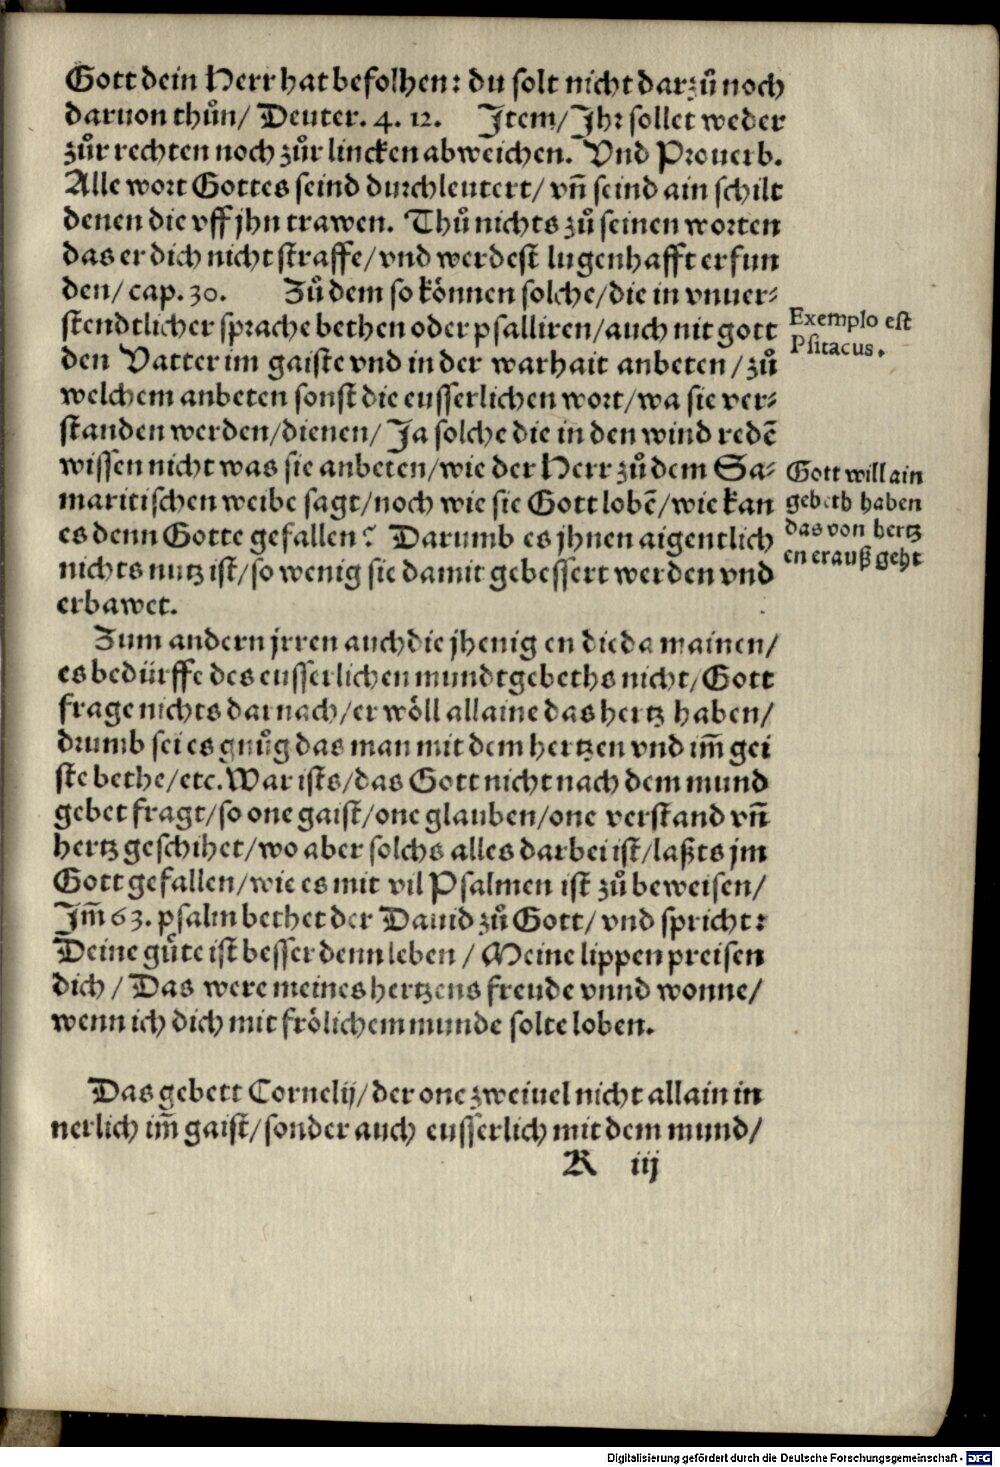 Gott dein Herr hat befolhen: du solt nicht darzuͦ noch
daruon thuͦn/ Deuter. 4. 12. Item/ Jhr sollet weder
zuͦr rechten noch zuͦr lincken abweichen. Vnd Prouerb.
Alle wort Gottes seind durchleutert/ vñ seind ain schilt
denen die vff jhn trawen. Thuͦ nichts zuͦ seinen worten
das er dich nicht straffe/ vnd werdest lugenhafft erfun
den/ cap. 30. Zuͦ dem so koͤnnen solche/ die in vnuer⸗
stendtlicher sprache bethen oder psalliren/ auch nit gott
Exemplo est
Psitacus.
den Vatter im gaiste vnd in der warhait anbeten/ zuͦ
welchem anbeten sonst die eusserlichen wort/ wa sie ver⸗
standen werden/ dienen/ Ja solche die in den wind redẽ
wissen nicht was sie anbeten/ wie der Herr zuͦ dem Sa⸗
maritischen weibe sagt/ noch wie sie Gott lobẽ/ wie kan
es denn Gotte gefallen? Darumb es jhnen aigentlich
nichts nutz ist/ so wenig sie damit gebessert werden vnd
Gott will ain
gebeth haben
das von hertz
en erauß geht
erbawet.
Zum andern jrren auch die jhenig en die da mainen/
es bedürffe des eusserlichen mundtgebeths nicht/ Gott
frage nichts darnach/ er woͤll allaine das hertz haben/
drumb sei es gnuͦg das man mit dem hertzen vnd im̃ gei
ste bethe/ etc. War ists/ das Gott nicht nach dem mund
gebet fragt/ so one gaist/ one glauben/ one verstand vñ
hertz geschihet/ wo aber solchs alles darbei ist/ laßts jm
Gott gefallen/ wie es mit vil Psalmen ist zuͦ beweisen/
Im̃ 63. psalm bethet der Dauid zuͦ Gott/ vnd spricht:
Deine guͤte ist besser denn leben/ Meine lippen preisen
dich/ Das were meines hertzens freude vnnd wonne/
wenn ich dich mit froͤlichem munde solte loben.
Das gebett Cornelij/ der one zweiuel nicht allain in
nerlich im̃ gaist/ sonder auch eusserlich mit dem mund/
R iij
Digitalisierung gefördert durch die Deutsche Forschungsgemeinschaft - DFG